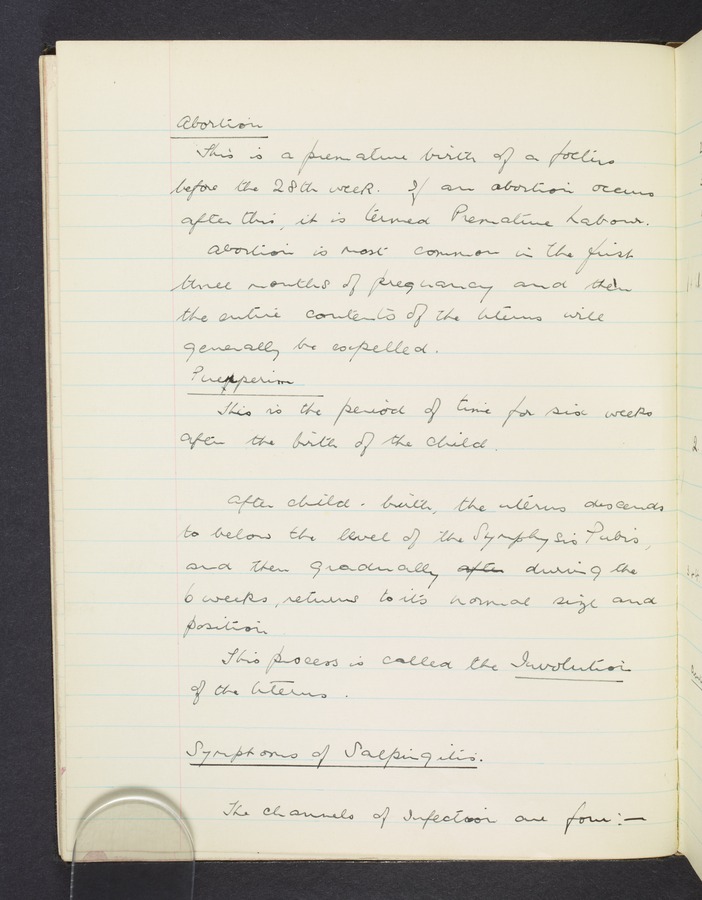 Abortion
This is a premature birth of a foetus
before the 28th week. If an abortion occurs
after this, it is termed Premature Labour.
Abortion is most common in the first
three months of pregnancy and then
the entire contents of the Uterus will
generally be expelled.
Puerperium
This is the period of time for six weeks
after the birth of the child.
After child-birth, the uterus descends
to below the level of the Symphysis Pubis,
and then gradually after during the
6 weeks, returns to its normal size and
position
This process is called the Involution
of the Uterus.
Symptoms of Salpingitis.
The channels of Infection are four:—